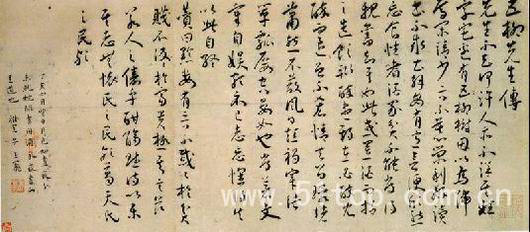 五柳先生傳
先生不知何許人亦不詳其姓
字宅邊有五柳樹因以為號
焉閑靖少言不慕榮利好讀
書不求甚解每有會意便欣然
忘食性嗜酒家貧不能常得
親舊知其如此或置酒而招
之造飲輒盡期在必醉既
醉而退曾不吝情去留環堵
蕭然不蔽風日短褐穿結
簞瓢屢空晏如也嘗著文
章自娛頗示己志忘懷得失
以此自終
贊曰黔婁有言不戚戚於貧
賤不汲汲於富貴極其言茲
若人之儔乎酣觴賦詩以樂
其志無懷氏之民歟葛天氏
之民歟